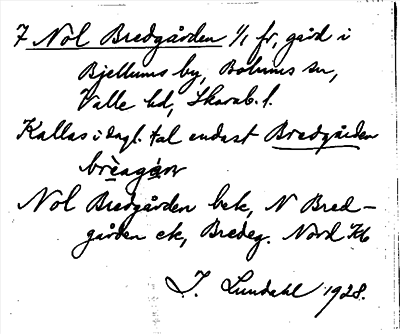 7 Nol Bredgården 1/1 fr, gård i
Bjellums by, Bolums sn,
Valle hd, Skarab. l.
Kallas i dagl. tal endast Bredgården
brèagán
Nol Bredgården bek, N Bred-
gården ek, Bredeg. Nord
I. Lundahl 1928.